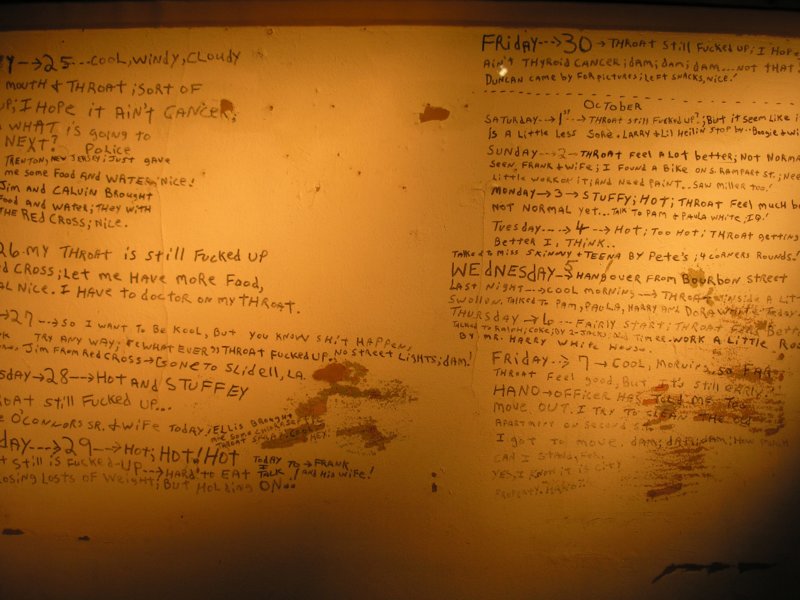 Y-->25---COOL, WINDY, CLOUDY
MOUTH & THROAT; SORT OF
UP; I HOPE it AiN'T CANCER;
WHAT iS GOING TO
NEXT? POLICE
TRENTON, NEW JERSEY; JUST GAVE
me some FOOD AND WATER; NiCE!
Jim AND CALVIN BROUGHT
FOOD AND WATER; THEY WITH
THE RED CROSS; NiCE.
26 MY THROAT is still FUCKED UP
CROSS; LET ME HAVE MORE FOOD,
NiCE. I HAVE to DOCTOR ON MY THROAT.
-->27---> SO I WANT TO BE KOOL, BUT YOU KNOW SHiT HAPPENS,
TRY ANY WAY; "WHATEVER" THROAT FUCKED UP. NO STREET LIGHTS; DAM!
Jim FROM RED CROSS-->GONE TO SLIDELL, LA.
SDAY->28--->HOT AND STUFFEY
ROAT still FUCKED UP...
O'CONNORS SR. & WiFE TODAY; ELLIS BROUGHT
ME SOME
THROAT
DAY--->29--->HOT; HOT! HOT TODAY TO-> FRANK
still is FUCKED-UP--->HARD TO EAT I TALK ! AND His WiFE!
LOSING LOSTS OF WEiGHT; BUT HOLDiNG ON..
FRiDAY--->30-> THROAT Still FUCKED UP; I HOPE
AiN'T THYROiD CANCER; DAM; DAM; DAM...NOT THAT
DUNCAN CAME BY FOR PiCTURES; LEFT SNACKS, NiCE!
OCTOBER
SATURDAY--->1ST---THROAT still FUCKED UP?; BUT it SEEM LiKE i
iS A LiTTLE LESS SORE. LARRY & LiL HEiLIN STOP BY-- BOOGiE & Wi
SUNDAY---2--THROAT FEEL A LOT BETTER; NOT NORMA
SEEN, FRANK & WiFE; I FOUND A BiKE ON S. RAMPART ST.; NEE
LiTTLE WORK ON iT; AND NEED PAiNT... SAW MiLLER TOO!
MONDAY->3-> STUFFY; HOT; THROAT FEEL MUCH b
NOT NORMAL YET... TALK TO PAM & PAULA WHiTE; I.Q.!
TUESDAY----4---HOT; TOO HOT; THROAT GETTiNG
BETTER I, THiNK..
TALKED TO MiSS SKiNNY & TEENA BY PETE'S; 4 CORNERS ROUNDS!
WEDNESDAY-->5-->HANGOVER FROM BOURBON STREET
LAST NiGHT--->COOL MORNiNG--->THROAT iNSiDE A LiT
SWOLLEN. TALKED TO PAM, PAULA, HARRY AND DORA WHiTE TODAY
THURSDAY--->6---FAiRLY START; THROAT FEEL BETT
TALKED TO RALPH; COKE; BY 2-JACKS; WORK A LiTTLE
BY MR. HARRY WHiTE HOUSE
FRiDAY---> 7 --> COOL, MORNiNG, SO FAR
THROAT FEEL GOOD, BUT iTS STiLL
HAND->OFFiCER HAS TOLD ME TOO
MOVE OUT. I TRY TO CLEAN THE OLD
APARTMENT ON SECOND ST.
I GOT TO MOVE. DAM; DAM; DAM; HOW MUCH
CAN I STAND, FOR.
YES, I KNOW iT iS CiTY
PROPERTY.